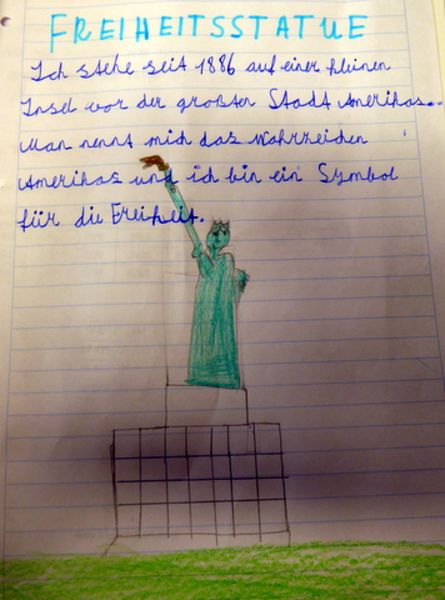 FREIHEITSSTATUE
Ich stehe seit 1886 auf einer kleinen
Insel vor der großten Stadt Amerikas...
Man nennt mich das Wahrzeiden
Amerikas und ich bin ein Symbol
für die Freiheit.